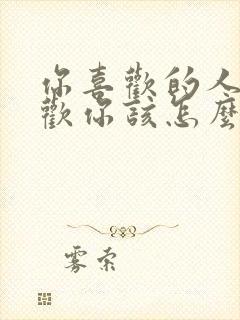 你喜歡的人
歡你該怎麼
雾索